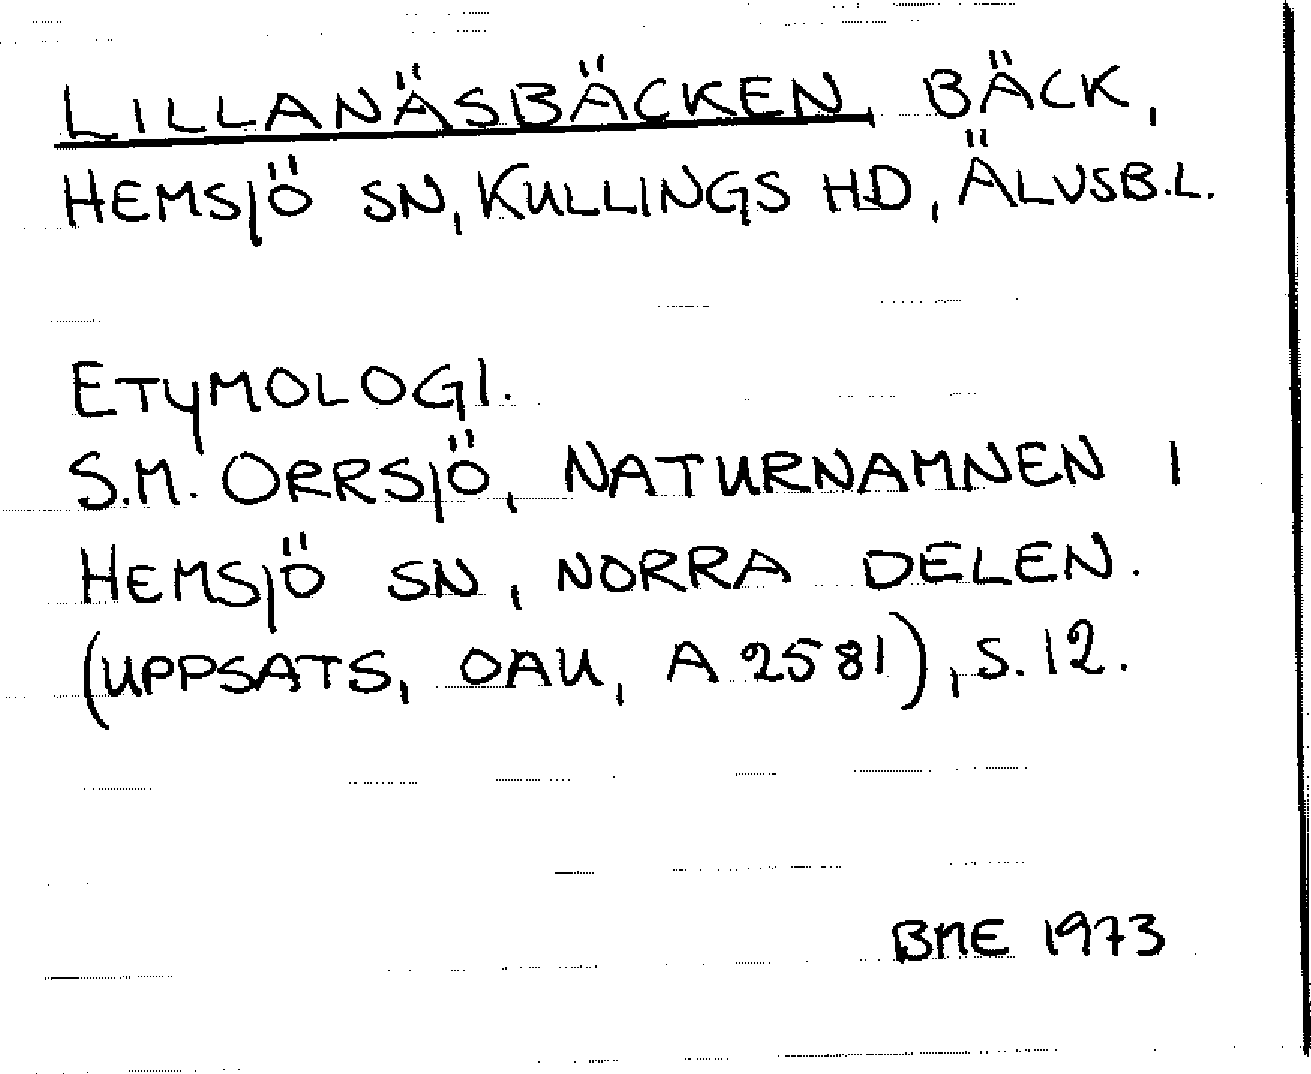 LILLANÄSBÄCKEN, BÄCK,
HEMSJÖ SN, KULLINGS HD, ÄLVSB.L.
ETYMOLOGI.
S.M. ORRSJÖ, NATURNAMNEN I
HEMSJÖ SN, NORRA DELEN.
(UPPSATS, OAU, A 2581), S. 12.
BME 1973